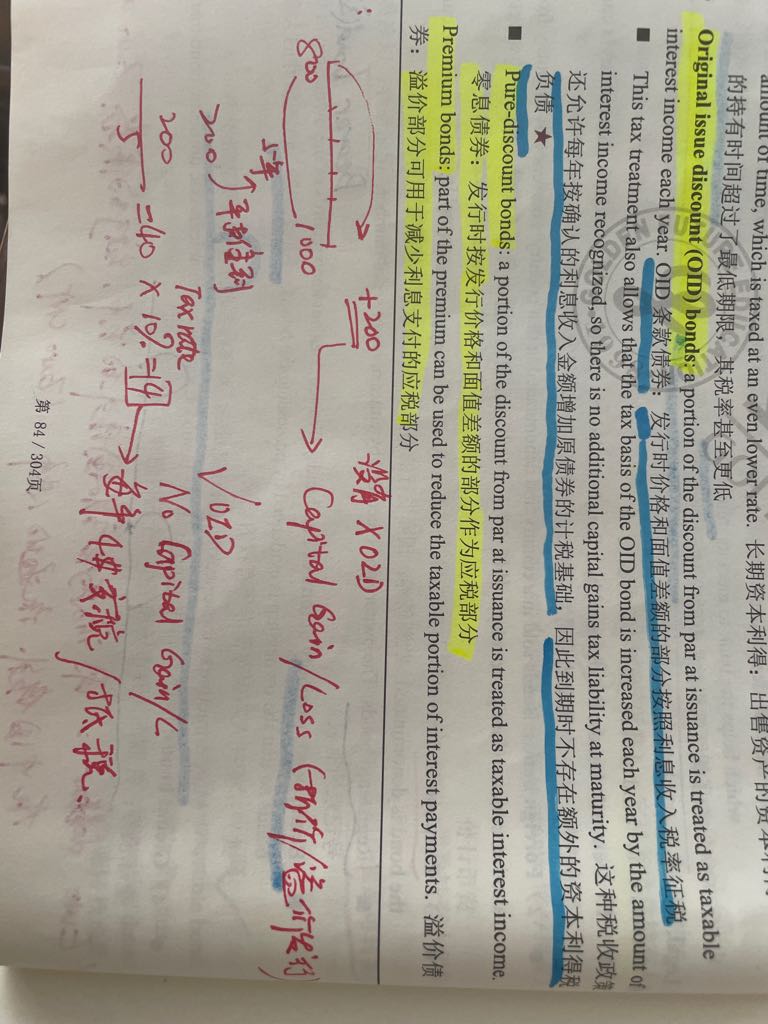 amount of time, which is taxed at an even lower rate. 长期资本利得:出售资产的资本利
的持有时间超过了最低期限,其税率甚至更低
Original issue discount (OID) bonds: a portion of the discount from par at issuance is treated as taxable
interest income each year. OID 条款债券:发行时价格和面值差额的部分按照利息收入税率征税
■ This tax treatment also allows that the tax basis of the OID bond is increased each year by the amount of
interest income recognized, so there is no additional capital gains tax liability at maturity. 这种税收政策
还允许每年按确认的利息收入金额增加原债券的计税基础,因此到期时不存在额外的资本利得税
负债 ★
■ Pure-discount bonds: a portion of the discount from par at issuance is treated as taxable interest income.
零息债券:发行时按发行价格和面值差额的部分作为应税部分
Premium bonds: part of the premium can be used to reduce the taxable portion of interest payments. 溢价债
券:溢价部分可用于减少利息支付的应税部分
800
1000
5年
+200
没有 X OID
Capital Gain/Loss
200
√ OID
No Capital Gain/L
Tax rate
200
5
=40 × 10% =
每年
第 84 / 304页